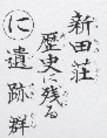 新田荘
歴史に残る
に遺跡群